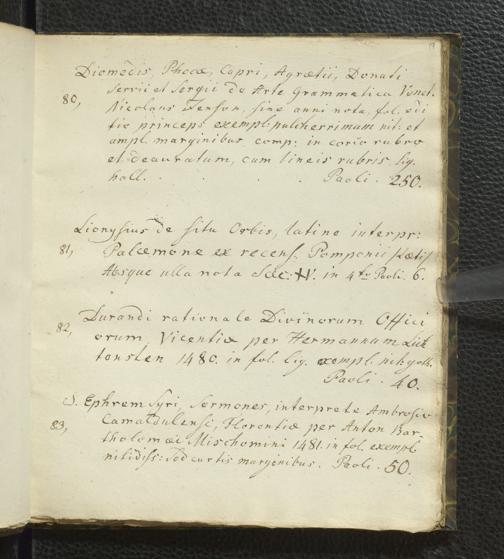 Diomedis, Phocæ, Capri, Agrætii, Donati
80, Servii et Sergii de Arte Grammatica Venet.
Nicolaus Jenson, sine anni nota, fol. edi
tio princeps exempl: pulcherrimum nit: et
ampl. marginibus comp: in corio rubro
et deauratum, cum lineis rubris lig.
holl. . . . . Paoli . 250.
Dionysius de situ Orbis, latine interpr:
81, Palæmone ex recens. Pomponii Lætii
Absque ulla nota Sæc: XV. in 4to Paoli 6.
Durandi rationale Divinorum Offici
82, orum, Vicentiæ per Hermannum
1480. in fol. lig. exempl.
Paoli . 40.
S. Ephrem Syri, Sermones, interprete Ambrosio
83, Camaldulensi, Florentiæ per Anton Bar-
tholomæi Mischomini 1481. in fol. exempl.
nitidiss: sed curtis marginibus. Paoli . 50.